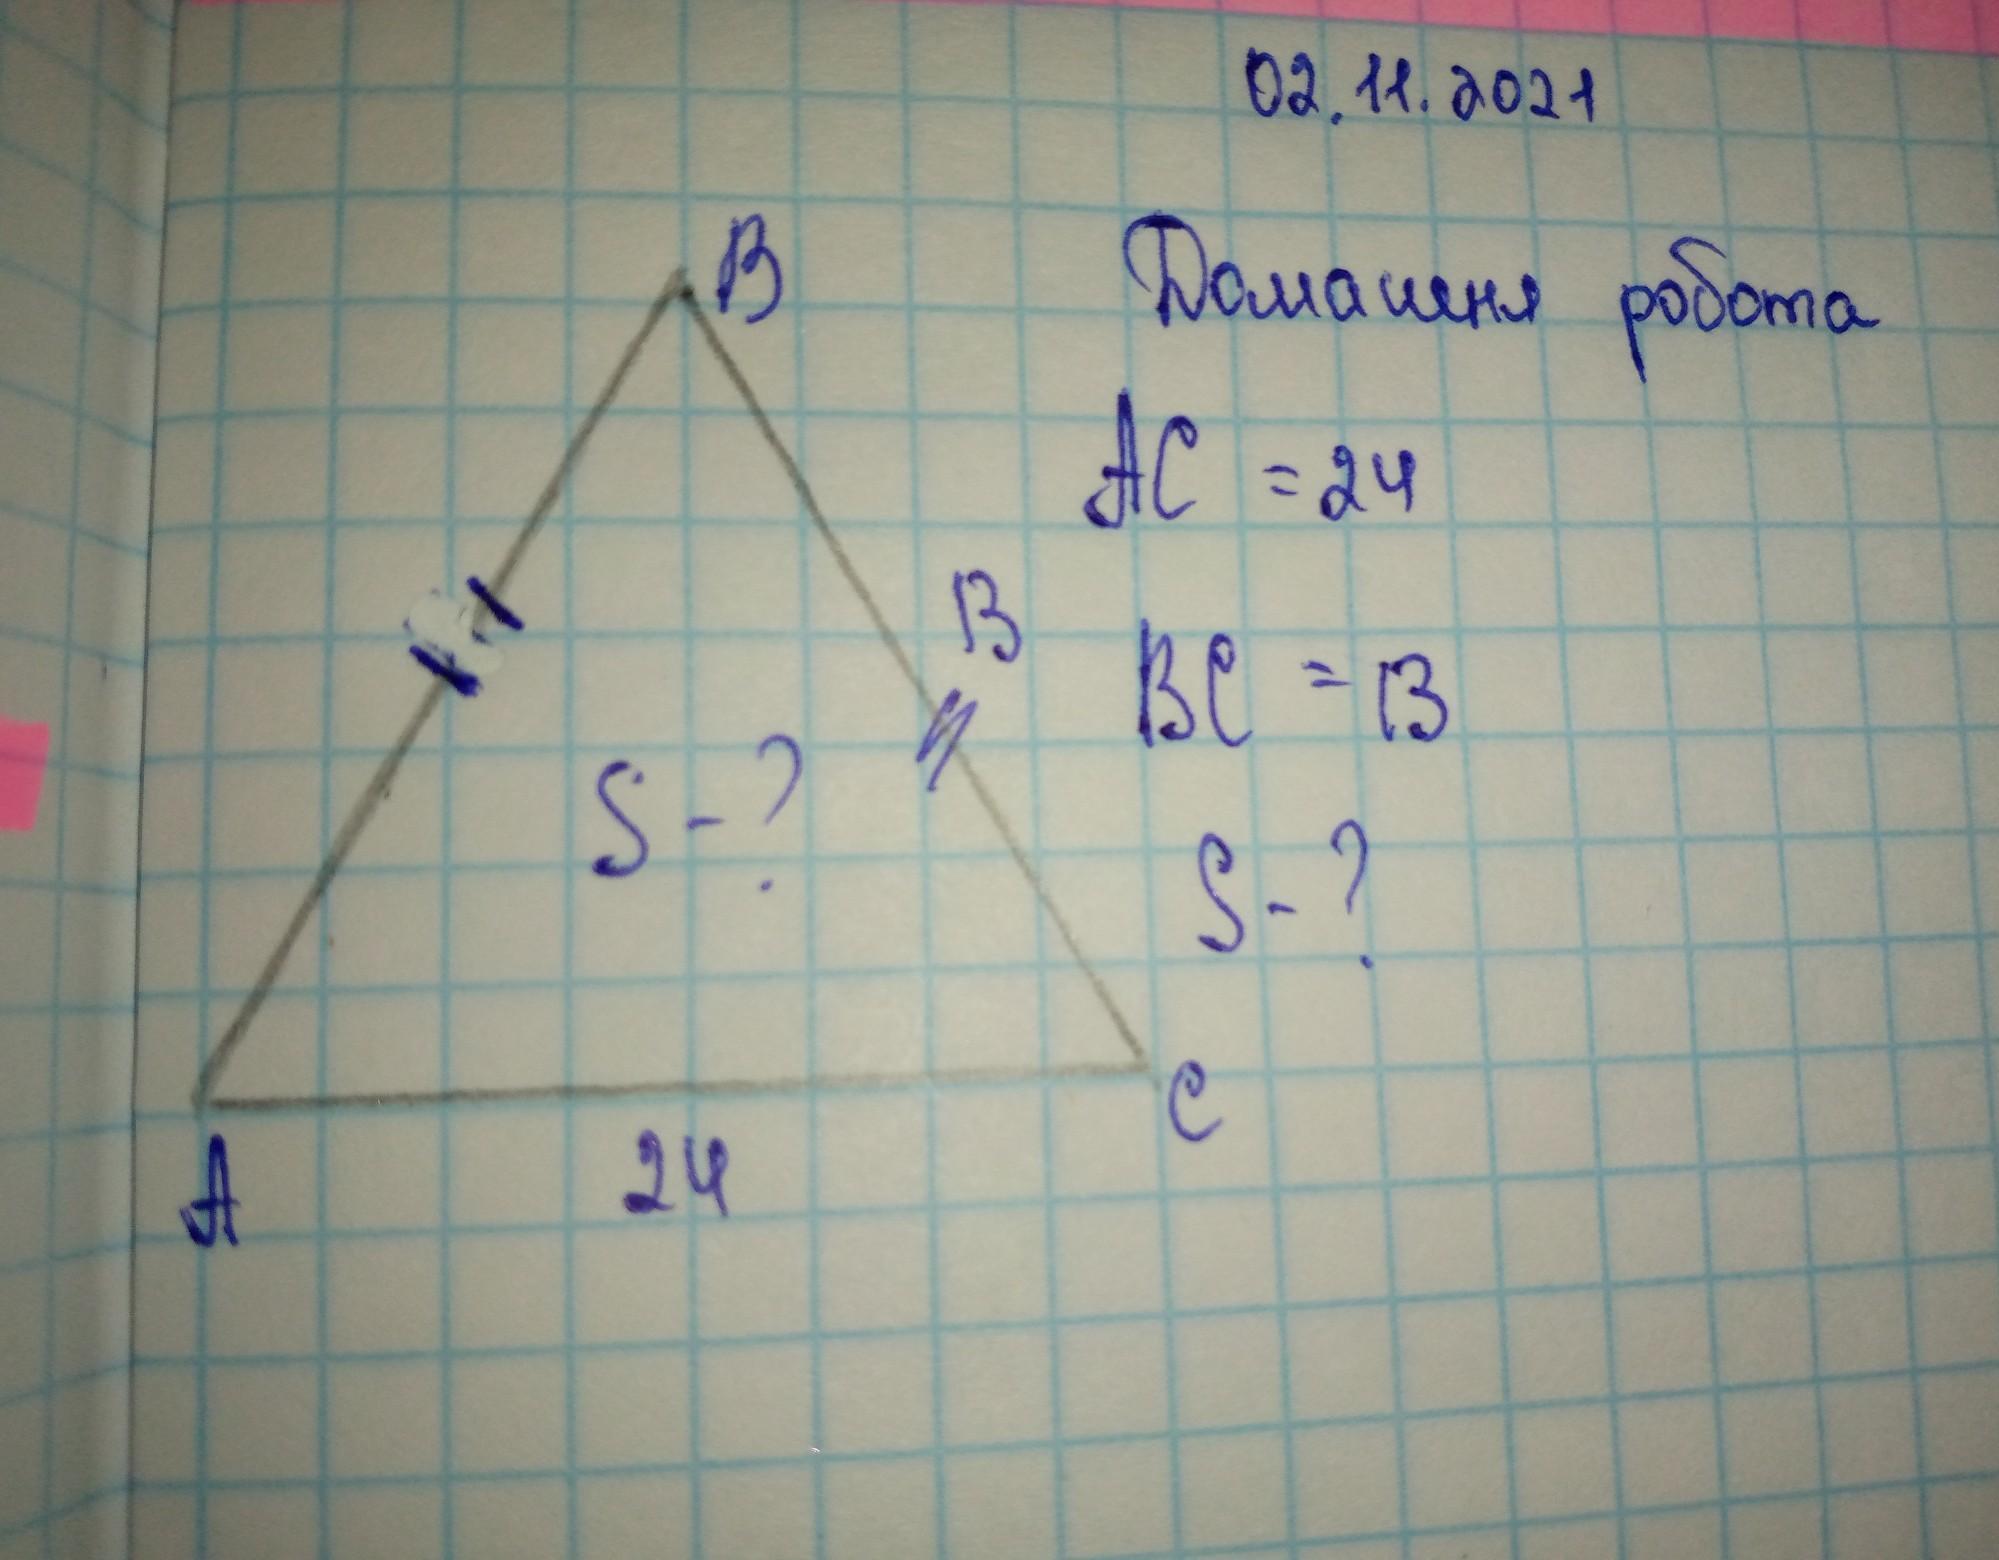 02.11.2021
Домашня робота
B
AC = 24
13
BC = 13
S - ?
S - ?
A
24
C